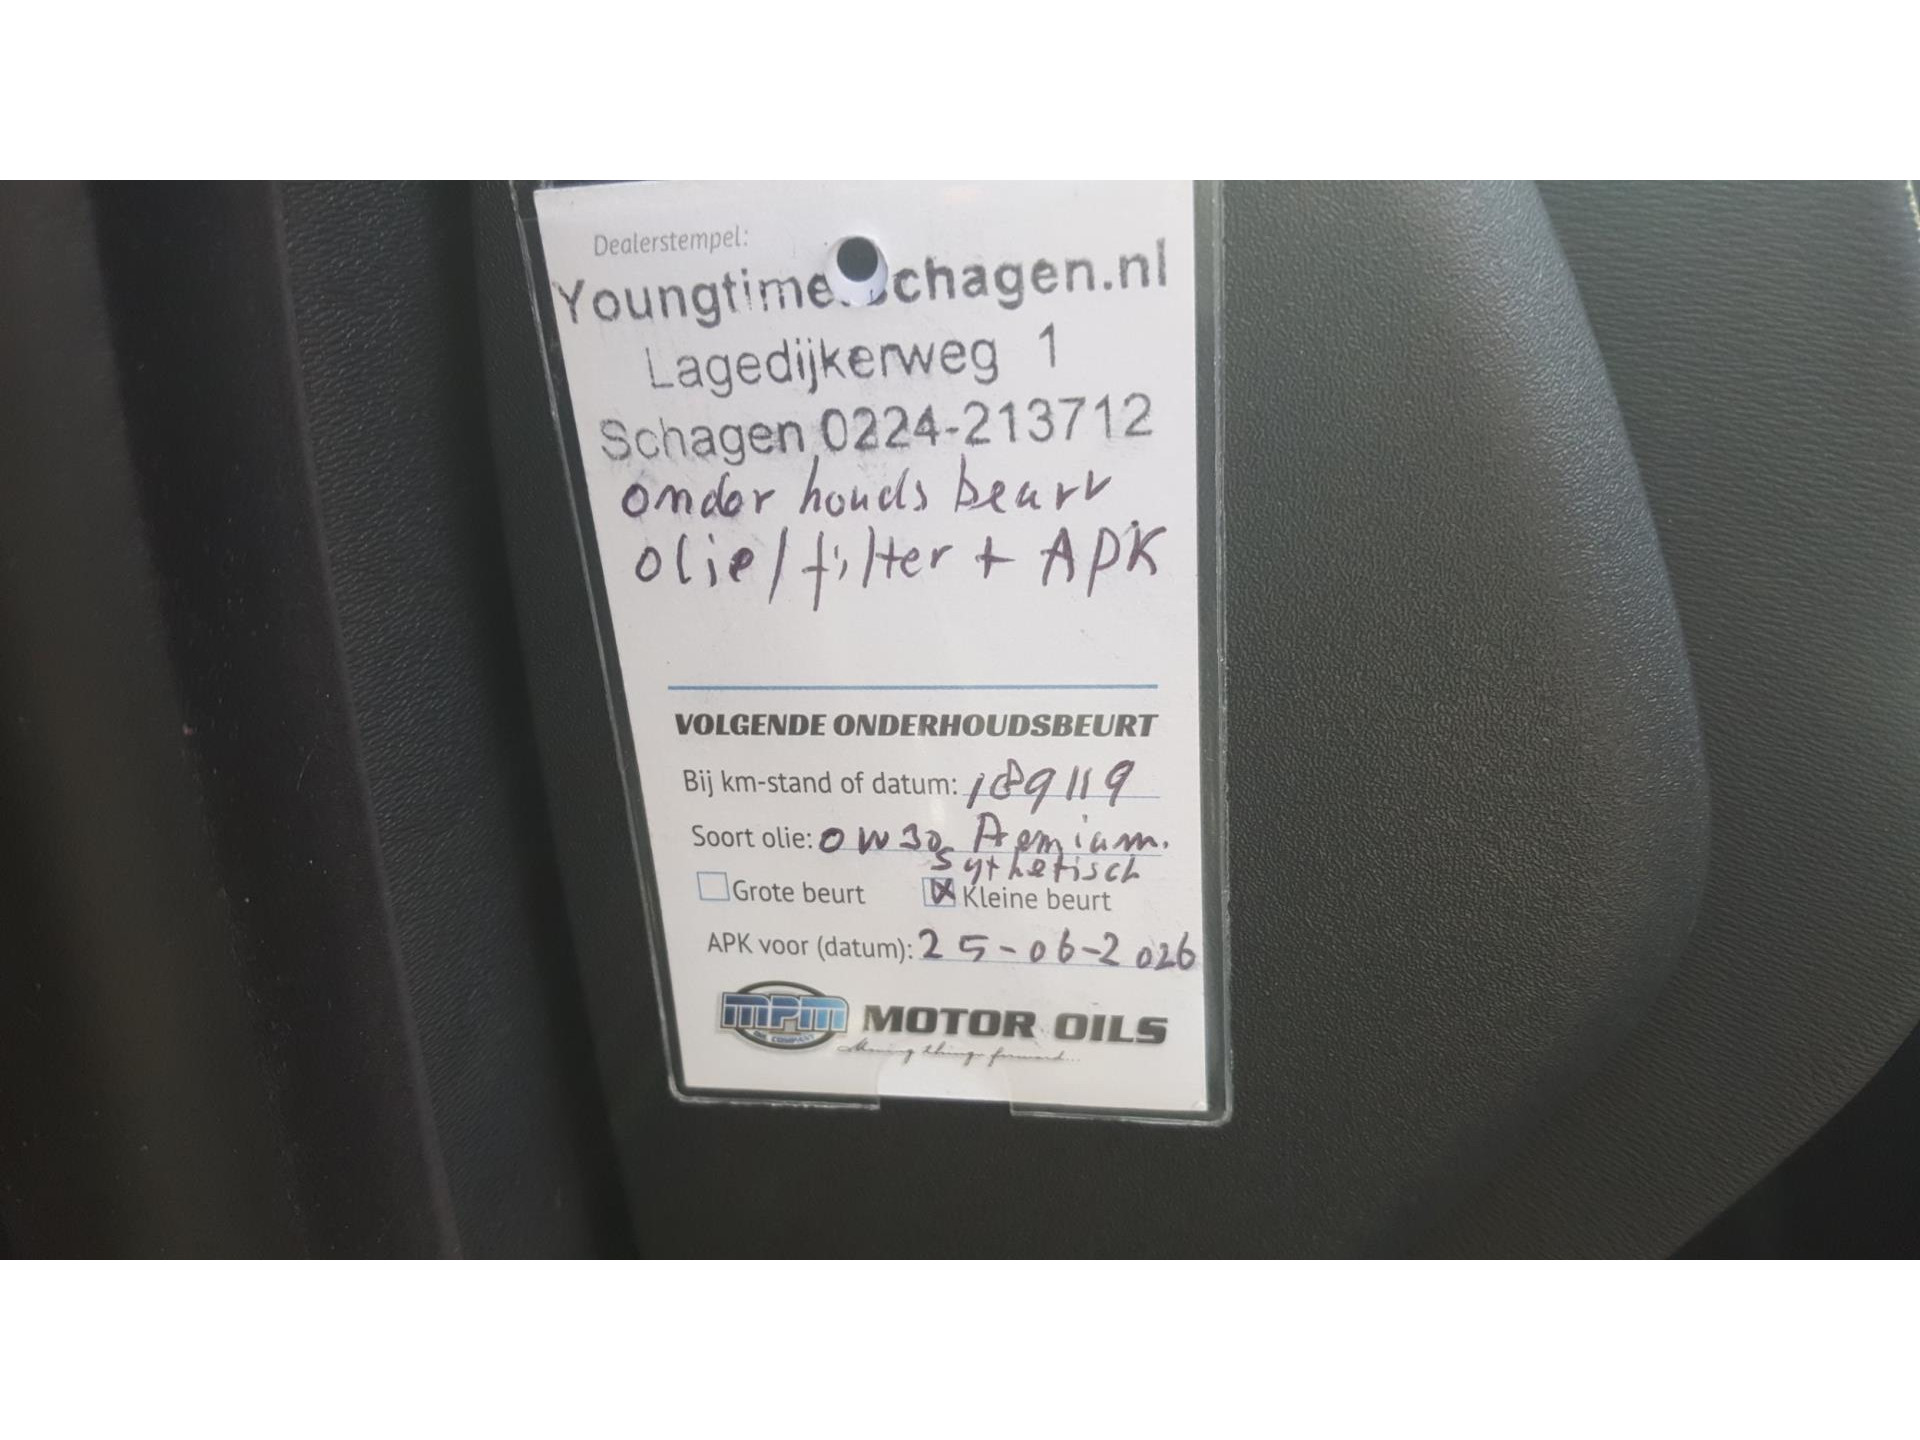 Dealerstempel:
Youngtimerschagen.nl
Lagedijkerweg 1
Schagen 0224-213712
onderhoudsbeurt
olie/filter + APK
VOLGENDE ONDERHOUDSBEURT
Bij km-stand of datum: 189119
Soort olie: 0W30
Sythetisch
Grote beurt Kleine beurt
APK voor (datum): 25-06-2026
MPM MOTOR OILS
OIL COMPANY
Moving things forward...